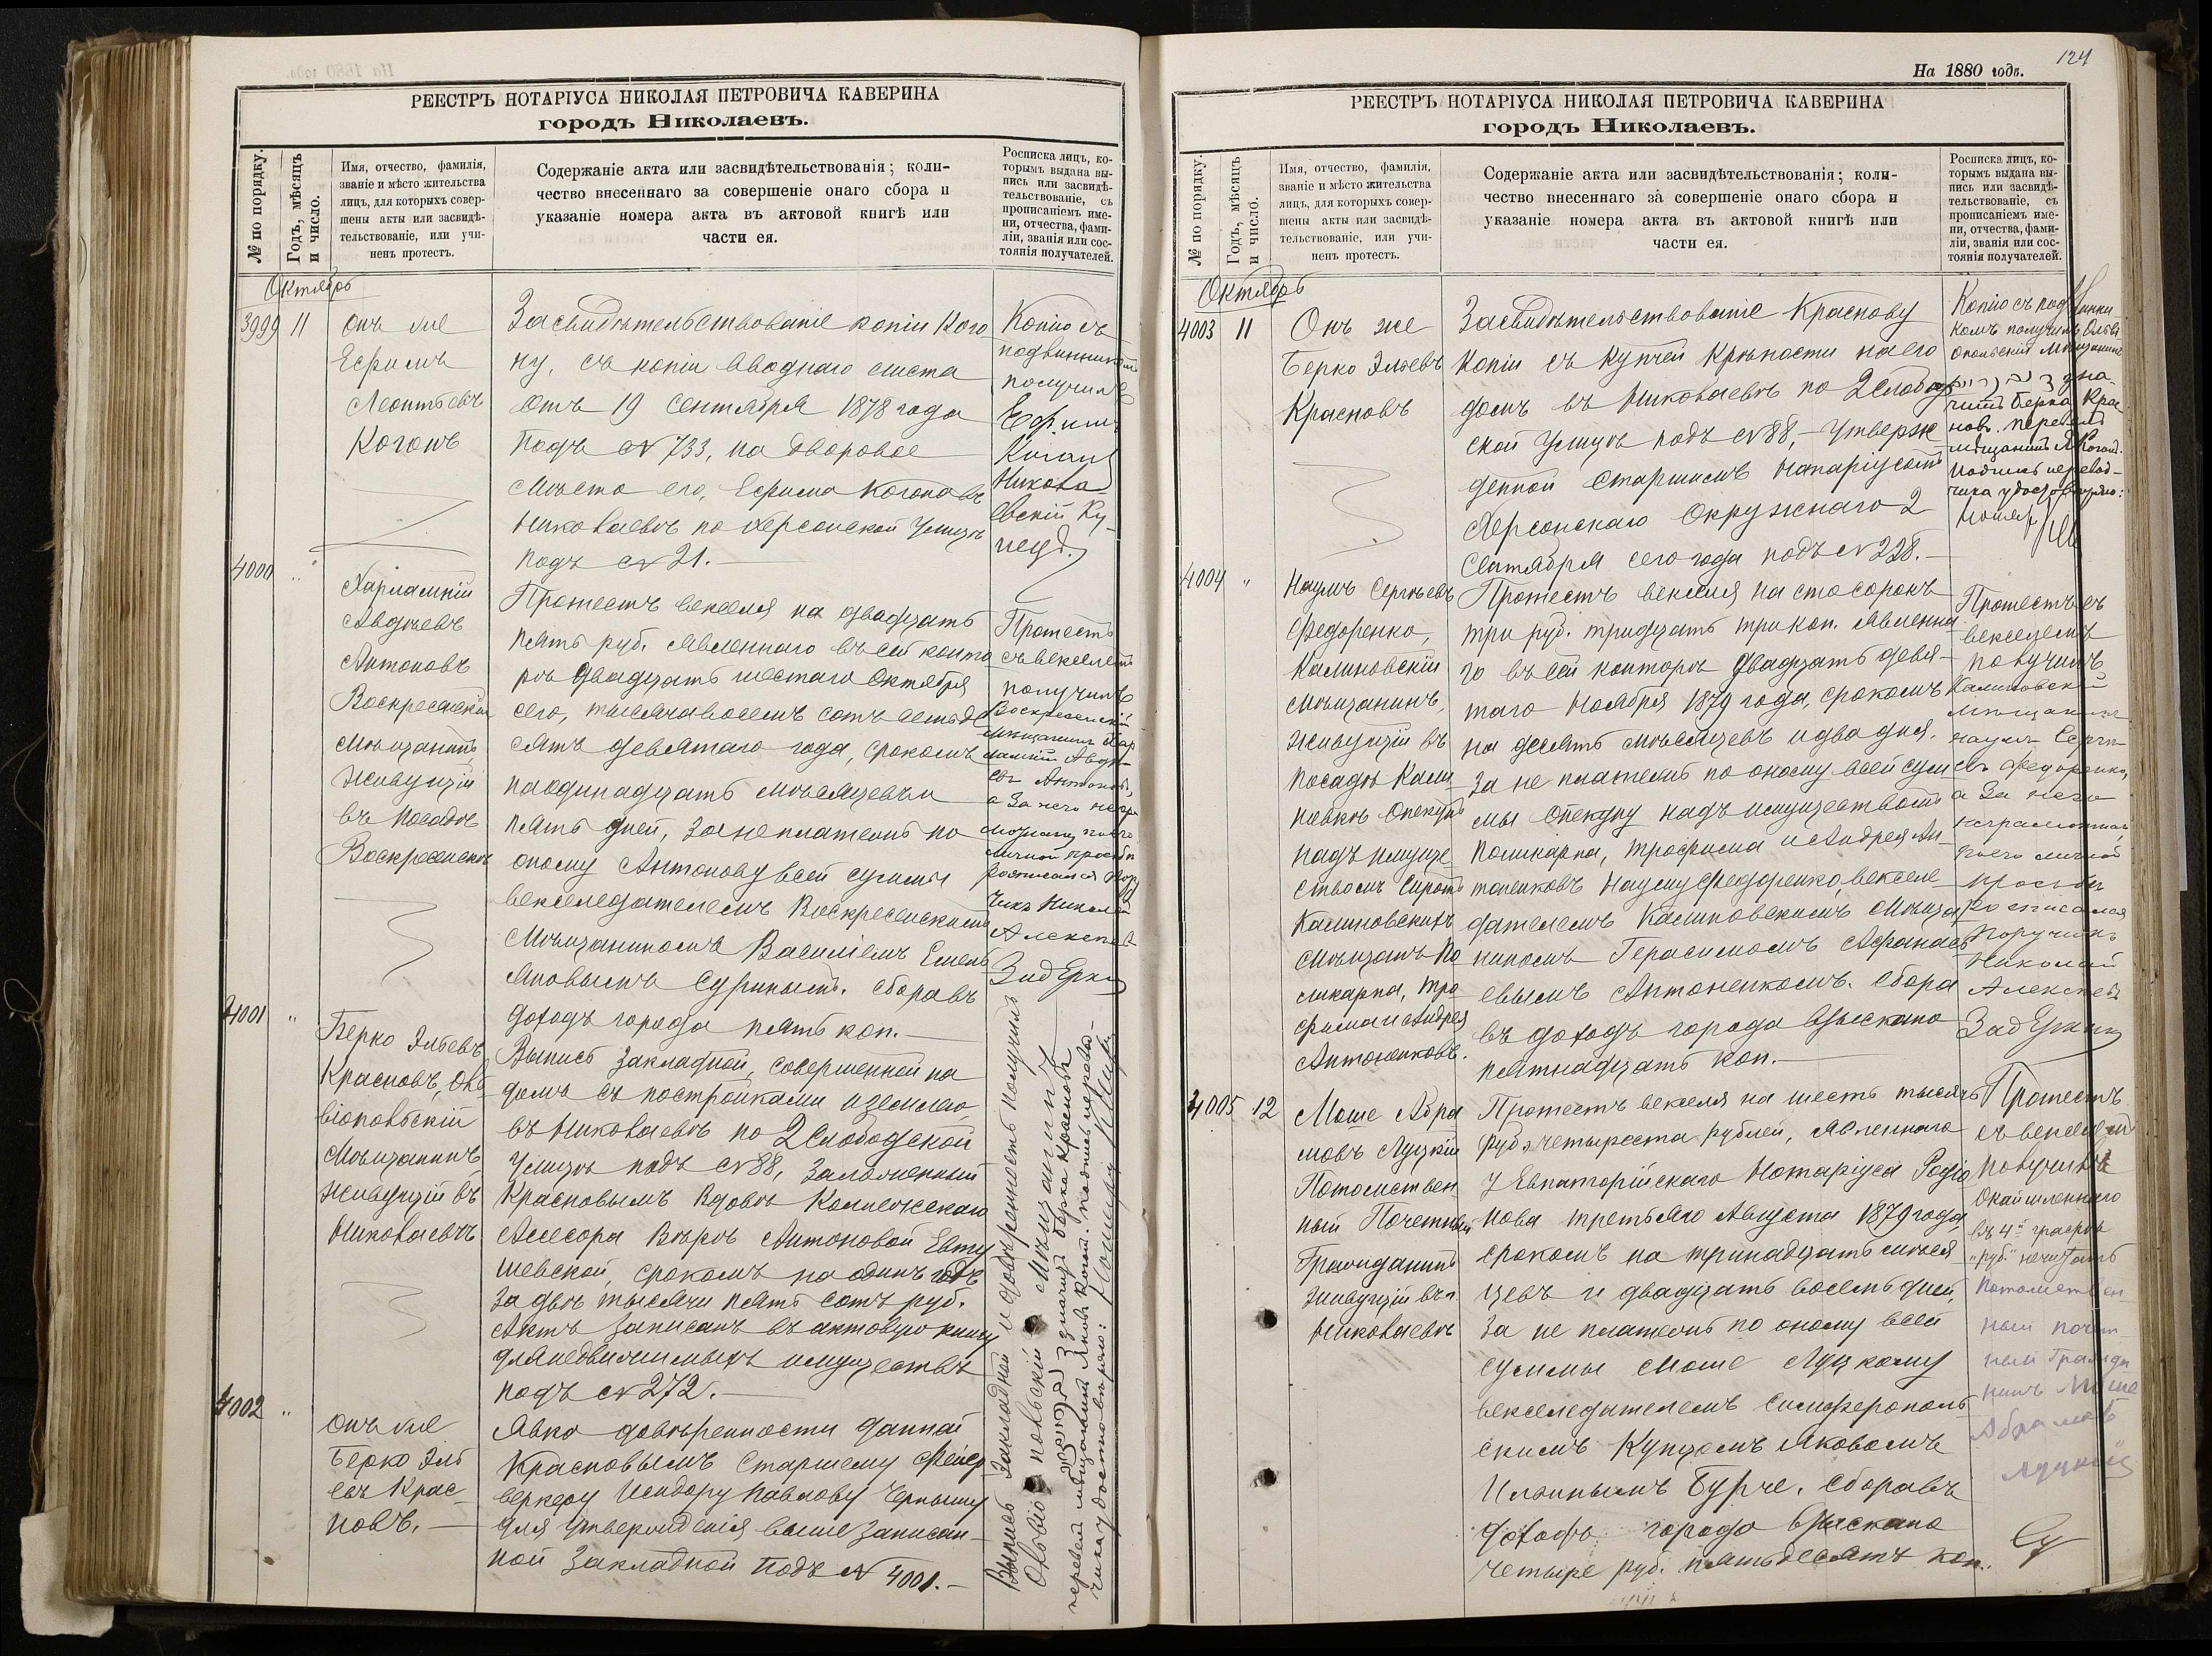 РЕЕСТРЪ НОТАРІУСА НИКОЛАЯ ПЕТРОВИЧА КАВЕРИНА
городъ Николаевъ.
№ по порядку.
Годъ, мѣсяцъ
и число.
Имя, отчество, фамилія,
званіе и мѣсто жительства
лицъ, для которыхъ совер-
шены акты или засвидѣ-
тельствованіе, или учи-
ненъ протестъ.
Содержаніе акта или засвидѣтельствованія; коли-
чество внесеннаго за совершеніе онаго сбора и
указаніе номера акта въ актовой книгѣ или
части ея.
Росписка лицъ, ко-
торымъ выдана вы-
пись или засвидѣ-
тельствованіе, съ
прописаніемъ име-
ни, отчества, фами-
ліи, званія или сос-
тоянія получателей.
Октябрь
3999 11
Онъ же
Ефимъ
Леонтьевъ
Когонъ
Засвидѣтельствованіе копіи Кого
ну, съ копіи вводнаго листа
отъ 19 Сентября 1878 года
подъ № 733, на дворовое
мѣсто его, Ефима Когона въ
Николаевѣ по Херсонской улицѣ
подъ № 21.
Копію съ
подлинникомъ
получилъ
Ефимъ
Коганъ
Никола
евскій Ку
пецъ.
4000 "
Харлампій
Авдѣевъ
Антоновъ
Воскресенскій
мѣщанинъ,
живущій
въ посадѣ
Воскресенскѣ
Протестъ векселя на двадцать
пять руб. явленнаго въ сей конто
рѣ двадцать шестаго Октября
сего, тысяча восемь сотъ семьде
сятъ девятаго года, срокомъ
на одинадцать мѣсяцевъ и
пять дней, за неплатежъ по
оному Антонову всей суммы
векселедателемъ Воскресенскимъ
мѣщаниномъ Василіемъ Емель
яновымъ Суринымъ. Сбора въ
доходъ города пять коп.
Протестъ
съ векселемъ
получилъ
Воскресенскій
мѣщанинъ Хар
лампій Авдѣ-
евъ Антоновъ,
а за него негра
мотнаго по его
личной просьбѣ
росписался Пору
чикъ Николай
Алексѣевъ
4001 "
Берко Эльевъ
Красновъ, Оль
віопольскій
мѣщанинъ,
живущій въ
Николаевѣ
Выпись закладной, совершенной на
домъ съ постройками и землею
въ Николаевѣ по 2 Слободской
улицѣ подъ № 88, заложенный
Красновымъ вдовѣ Коллежскаго
Асесора Вѣрѣ Антоновой Евту
шевской, срокомъ на одинъ годъ
за двѣ тысячи пять сотъ руб.
Актъ записанъ въ актовую книгу
для недвижимыхъ имуществъ
подъ № 272.
4002 "
Онъ же
Берко Эль
евъ Крас
новъ.
Явка довѣренности данной
Красновымъ Старшему Фейер
веркеру Исидору Павлову Чернышу
для утвержденія выше записан
ной закладной подъ № 4001.
Выпись закладной и довѣренность получилъ
Ольвіопольскій мѣщанинъ
значитъ Берка Красновъ
перевелъ мѣщанинъ Яковъ Коганъ. Подпись перевод-
чика удостовѣряю: Нотаріусъ
На 1880 годъ.
124
РЕЕСТРЪ НОТАРІУСА НИКОЛАЯ ПЕТРОВИЧА КАВЕРИНА
городъ Николаевъ.
№ по порядку.
Годъ, мѣсяцъ
и число.
Имя, отчество, фамилія,
званіе и мѣсто жительства
лицъ, для которыхъ совер-
шены акты или засвидѣ-
тельствованіе, или учи-
ненъ протестъ.
Содержаніе акта или засвидѣтельствованія; коли-
чество внесеннаго за совершеніе онаго сбора и
указаніе номера акта въ актовой книгѣ или
части ея.
Росписка лицъ, ко-
торымъ выдана вы-
пись или засвидѣ-
тельствованіе, съ
прописаніемъ име-
ни, отчества, фами-
ліи, званія или сос-
тоянія получателей.
Октябрь
4003 11
Онъ же
Берко Эльевъ
Красновъ
Засвидѣтельствованіе Краснову
копіи съ купчей крѣпости на его
домъ въ Николаевѣ по 2 Слобод
ской улицѣ подъ № 88, утверж
денной Старшимъ Нотаріусомъ
Херсонскаго Окружнаго 2
Сентября сего года подъ № 228.
Копію съ подлинни
комъ получилъ Ольві
опольскій мѣщанинъ
зна-
читъ Берка Крас
новъ. Перевелъ
мѣщанинъ Я Коганъ.
Подпись перевод-
чика удостовѣряю:
Нотар
4004 "
Наумъ Сергѣевъ
Федоренко,
Калиновскій
мѣщанинъ,
живущій въ
посадѣ Кали
новкѣ опекунъ
надъ имуще
ствомъ сиротъ
Калиновскихъ
мѣщанъ По
ликарпа, Тро
фима и Андрея
Антоненковъ.
Протестъ векселя на сто сорокъ
три руб. тридцать три коп. явленна
го въ сей конторѣ двадцать девя-
таго Ноября 1879 года, срокомъ
на десять мѣсяцевъ и два дня.
За не платежъ по оному всей сум
мы опекуну надъ имуществомъ
Поликарпа, Трофима и Андрея Ан
тоненковъ Науму Федоренко, вексе-
дателемъ Калиновскимъ мѣща
ниномъ Герасимомъ Афанась
евымъ Антоненкомъ. Сбора
въ доходъ города взыскано
пятнадцать коп.
Протестъ съ
векселемъ
получилъ
Калиновскій
мѣщанинъ
Наумъ Сергѣ
евъ Федоренко,
а за него
неграмотнаго
по его личной
просьбѣ
росписался
Поручикъ
Николай
Алексѣевъ
4005 12
Моше Абра
мовъ Луцкій
Потомствен
ный Почетный
Гражданинъ
живущій въ г.
Николаевѣ
Протестъ векселя на шесть тысячъ
руб. четыреста рублей, явленнаго
у Евпаторійскаго Нотаріуса Родіо
нова третьяго Августа 1879 года
срокомъ на тринадцать мѣся
цевъ и двадцать восемь дней,
за не платежъ по оному всей
суммы Моше Луцкому
векселедателемъ Симферополь
скимъ купцомъ Яковомъ
Ильинымъ Бурче. Сбора въ
доходъ города взыскано
четыре руб. пятьдесятъ коп.
Протестъ
съ векселемъ
получилъ
Окаймленнаго
въ 4й графѣ
"руб." не читать
Потомствен
ный почет
ный Гражда
нинъ Моше
Абрамовъ
Луцкій